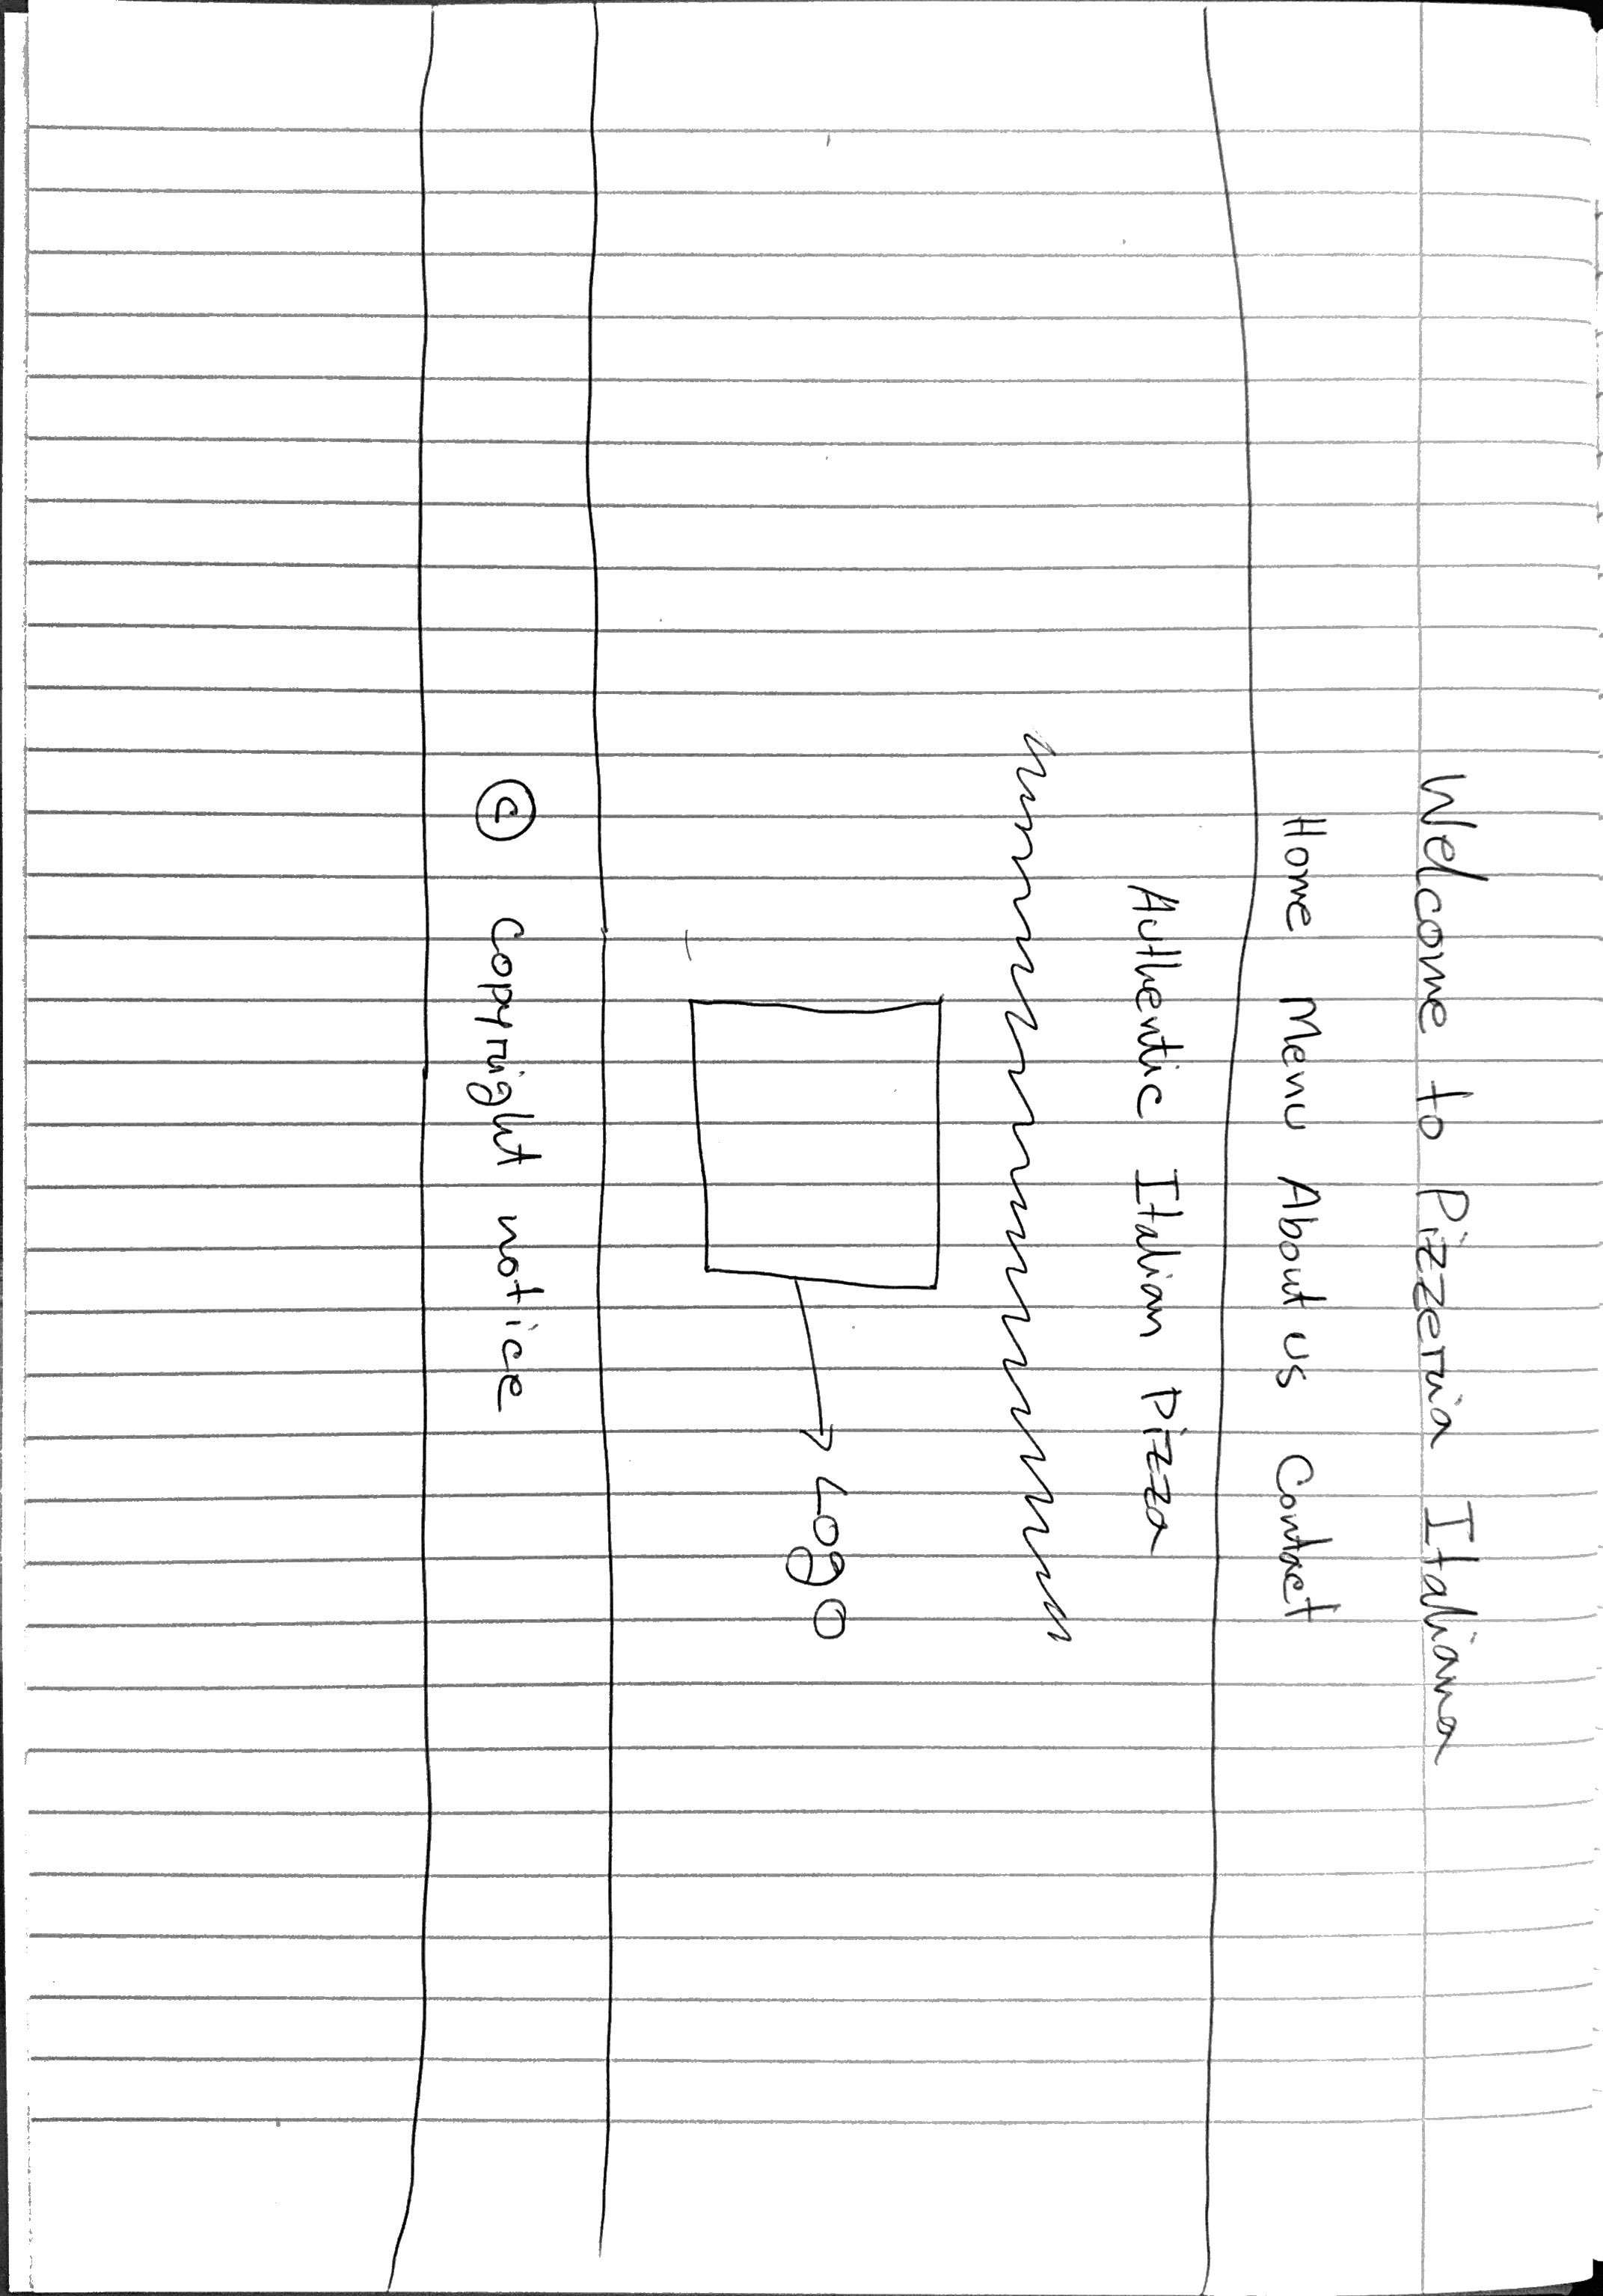 Welcome to Pizzeria Italiana
Home Menu About us Contact
Authentic Italian Pizza
Logo
© Copyright notice